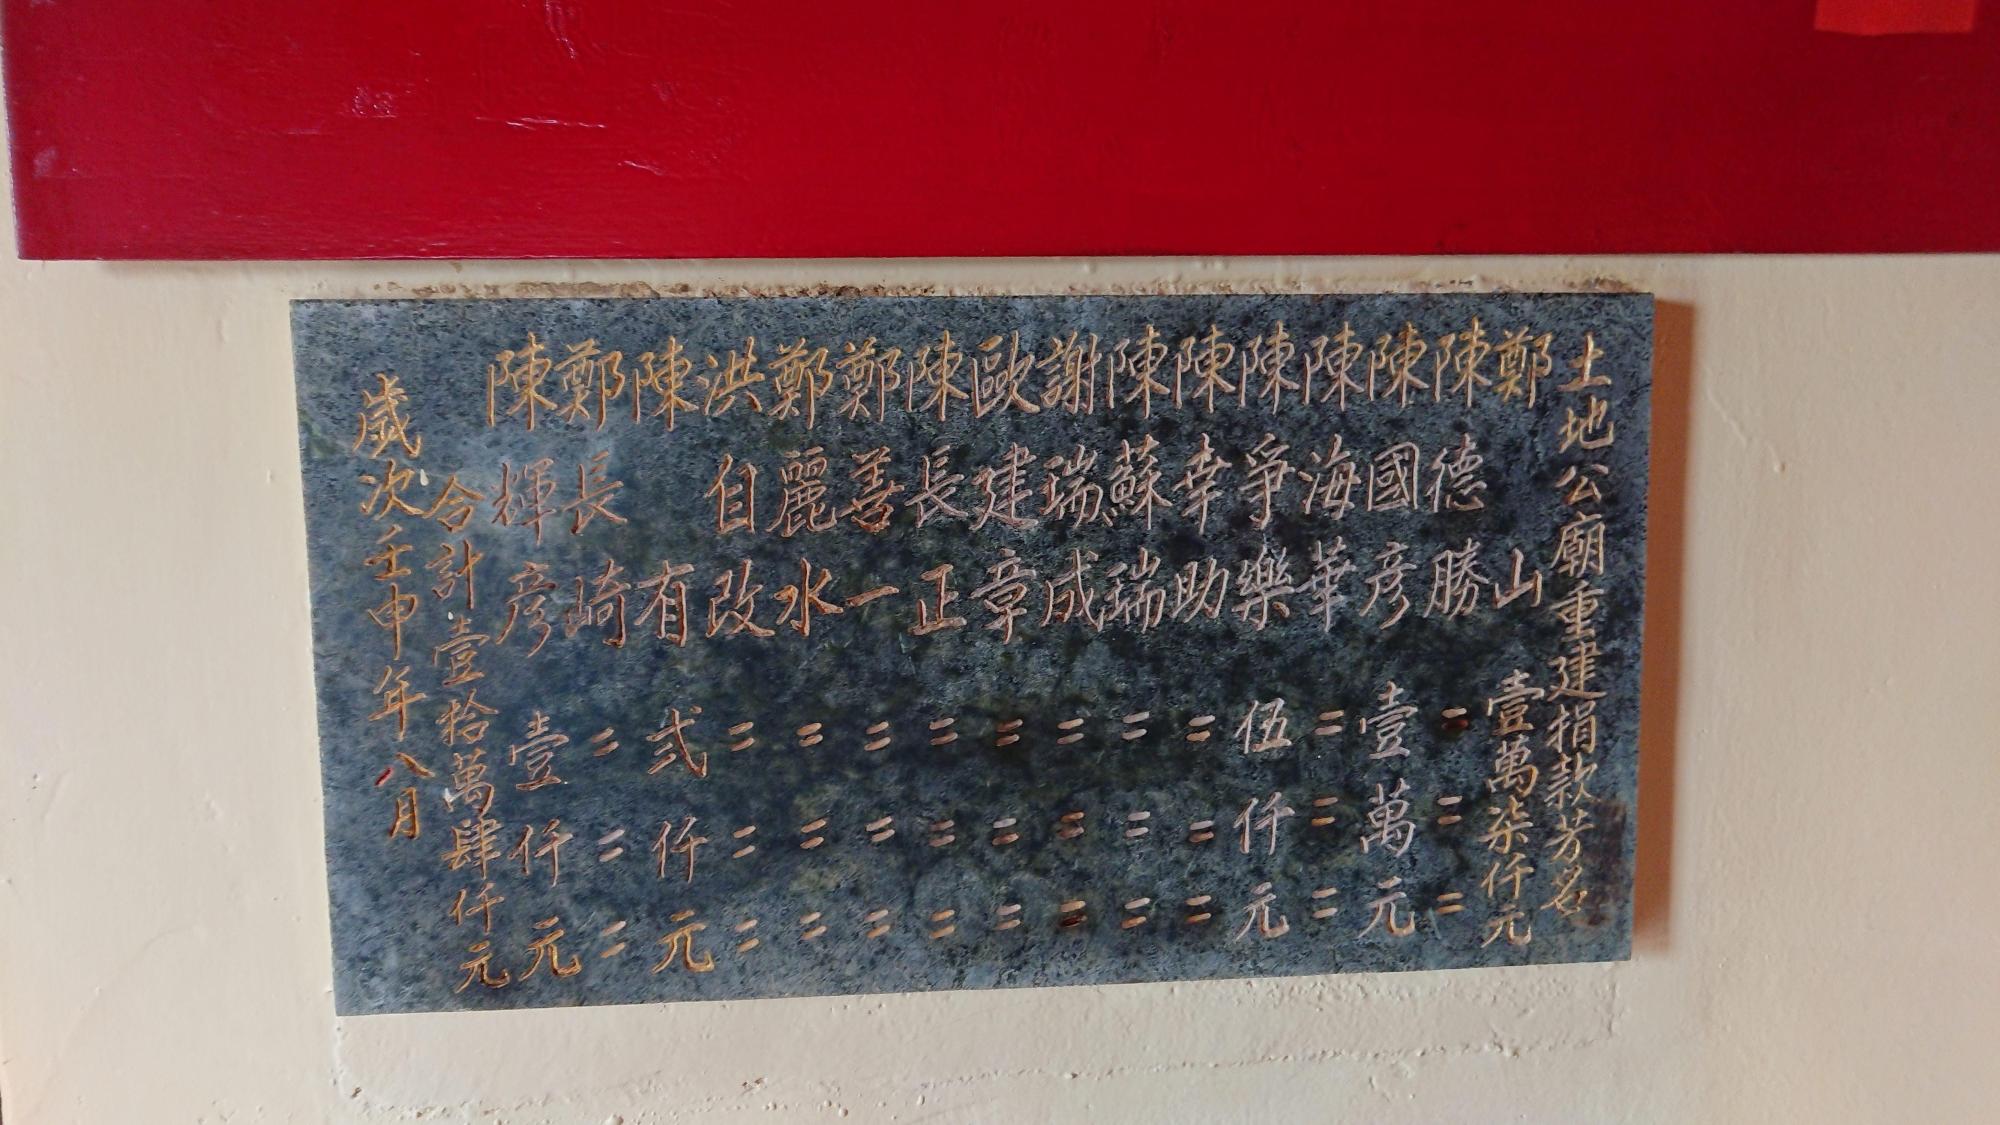 土地公廟重建捐款芳名
鄭山 壹萬柒仟元
陳德勝 〃〃〃
陳國彥 壹萬元
陳海華 〃〃〃
陳爭樂 伍仟元
陳幸助 〃〃〃
陳蘇瑞 〃〃〃
謝瑞成 〃〃〃
歐建章 〃〃〃
陳長正 〃〃〃
鄭善一 〃〃〃
鄭麗水 〃〃〃
洪自改 〃〃〃
陳有 弍仟元
鄭長崎 〃〃〃
陳輝彥 壹仟元
合計壹拾萬肆仟元
歲次壬申年八月